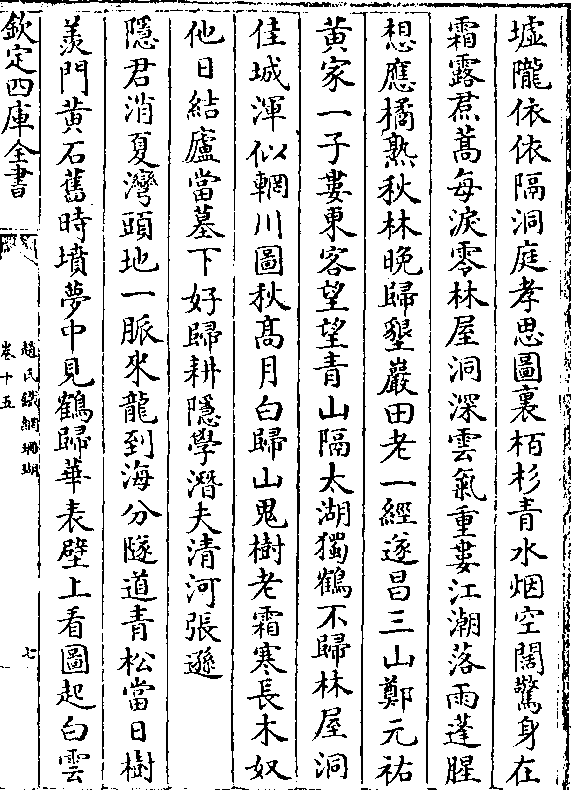 墟隴依依隔洞庭孝思圖裏栢杉青水烟空闊驚身在
霜露焄蒿每淚零林屋洞深雲氣重婁江潮落雨蓬腥
想應橘熟秋林晚歸壑巖田老一經遂昌三山鄭元祐
黄家一子婁東客望望青山隔太湖獨鶴不歸林屋洞
佳城渾似輞川圖秋髙月白歸山鬼樹老霜寒長木奴
他日結廬當墓下好歸耕隱學潛夫清河張遜
隱君消夏灣頭地一脈來龍到海分隧道青松當日樹
羨門黄石舊時墳夢中見鶴歸華表壁上看圖起白雲
欽定四庫全書
趙氏鐵網珊瑚
卷十五
七